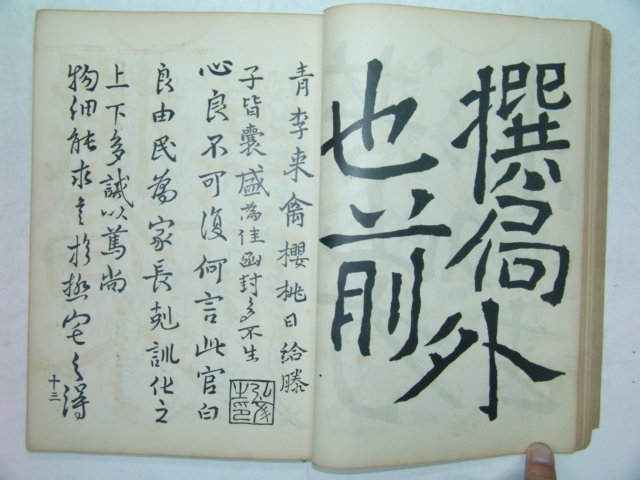 撰局外
也前
青李来禽櫻桃日給滕
子皆囊盛為佳函封多不生
心良不可復何言此官白
良由民為家長剋訓化之
上下多誠以篤尚
物細能求
得
十三